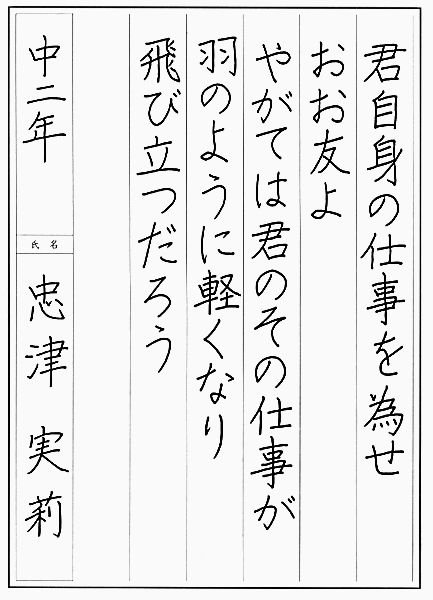 君自身の仕事を為せ
おお友よ
やがては君のその仕事が
羽のように軽くなり
飛び立つだろう
中二年
氏名
忠津 実莉